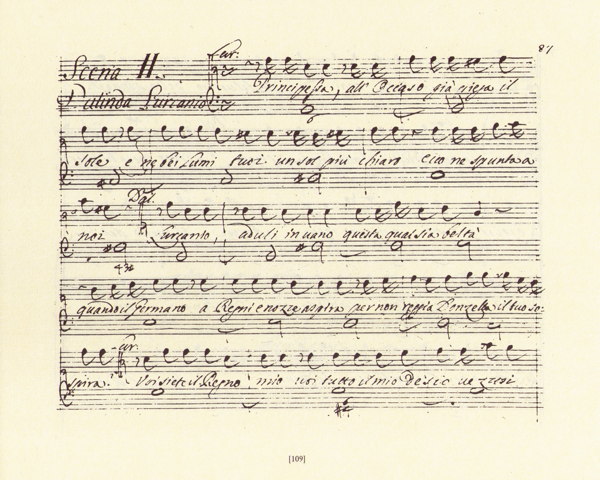 87
Lur:
Scena II.
Principessa, all'Occaso già piega il
Dalinda Lurcanio
Sole e ne bei Lumi tuoi un sol più chiaro ecco ne spunta a
Dal:
noi Lurcanio, aduli in vano questa qual sia beltà
quando il firmano a Regni e nozze aspira per non Regia Donzella il tuo so
Lur:
spira. Voi siete il Regno mio voi tutto il mio desio vezzosi
[109]